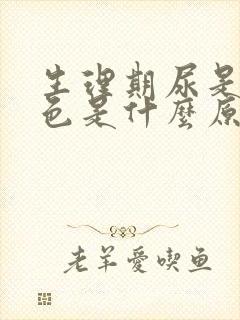 生理期尿是
色是什麼原
老羊愛喫鱼